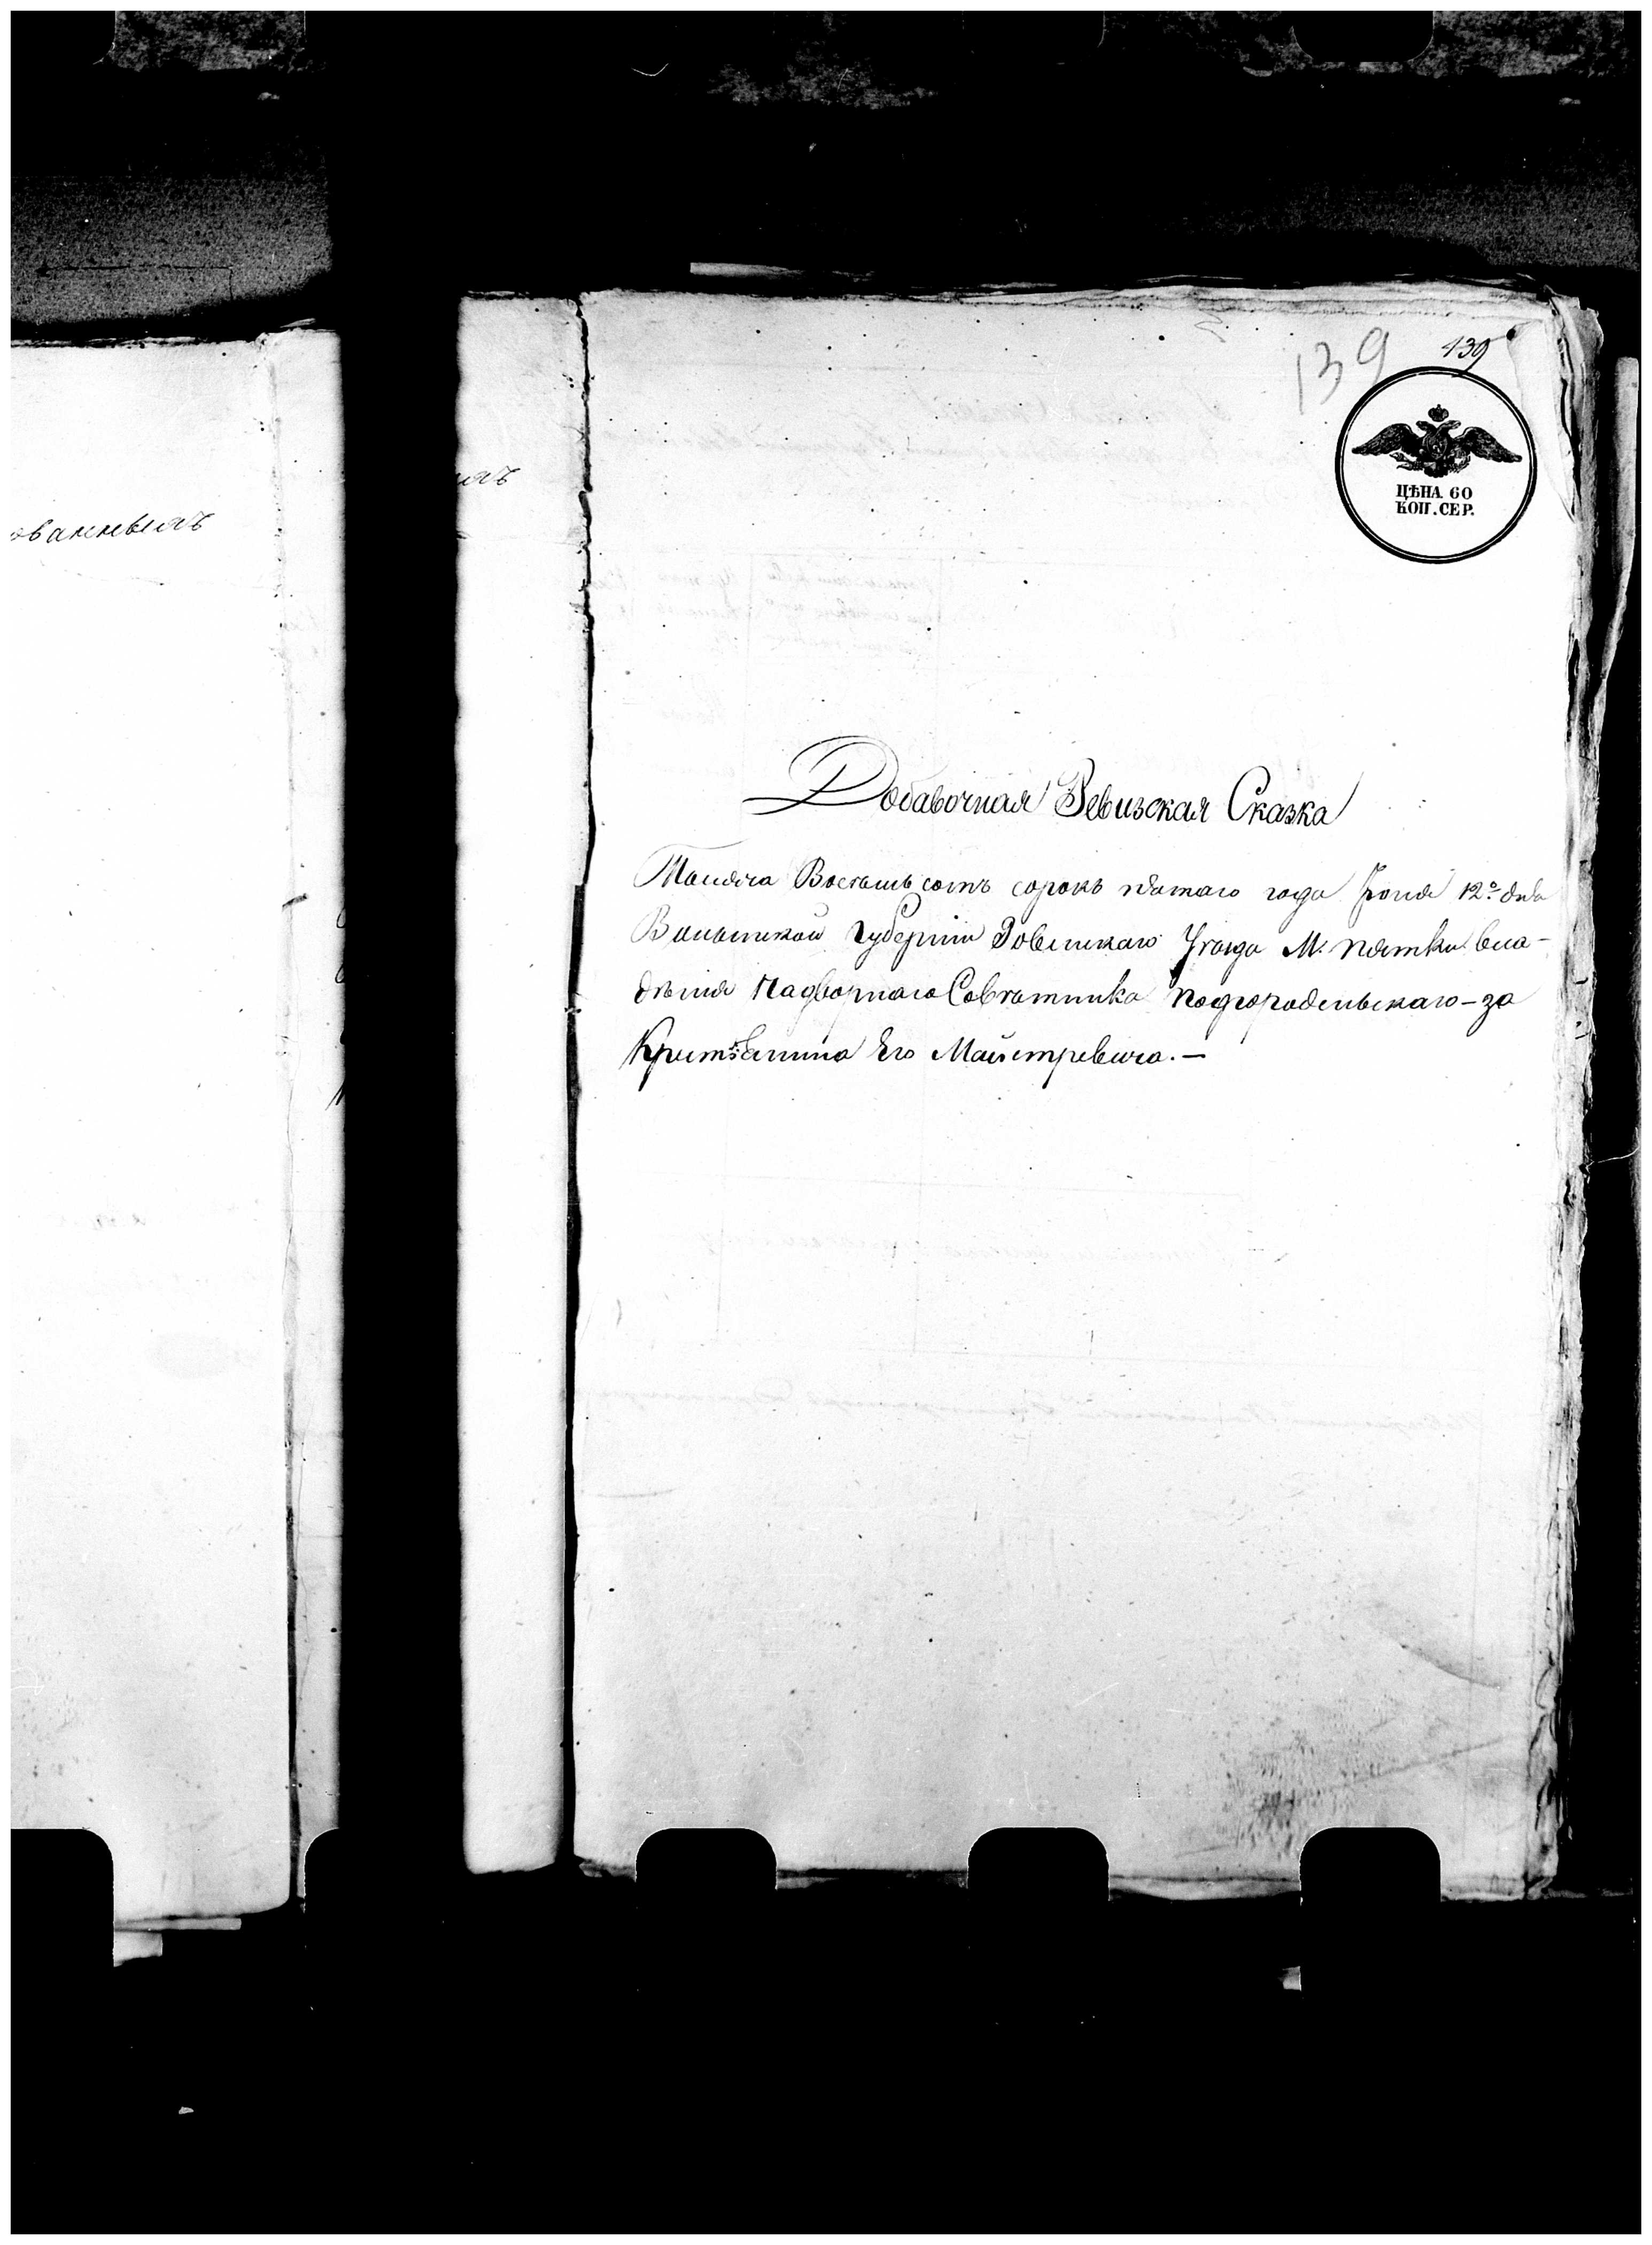 ованныхъ
139
139
ЦѢНА 60
КОП. СЕР.
Добавочная Ревизская Сказка
Тысяча Восемьсотъ сорокъ пятаго года Іюня 12го дня
Волынской Губерніи Ровенскаго Уѣзда М. Пятки вла-
дѣнія Надворнаго Совѣтника Подгородельскаго-за
его Майстревича.—